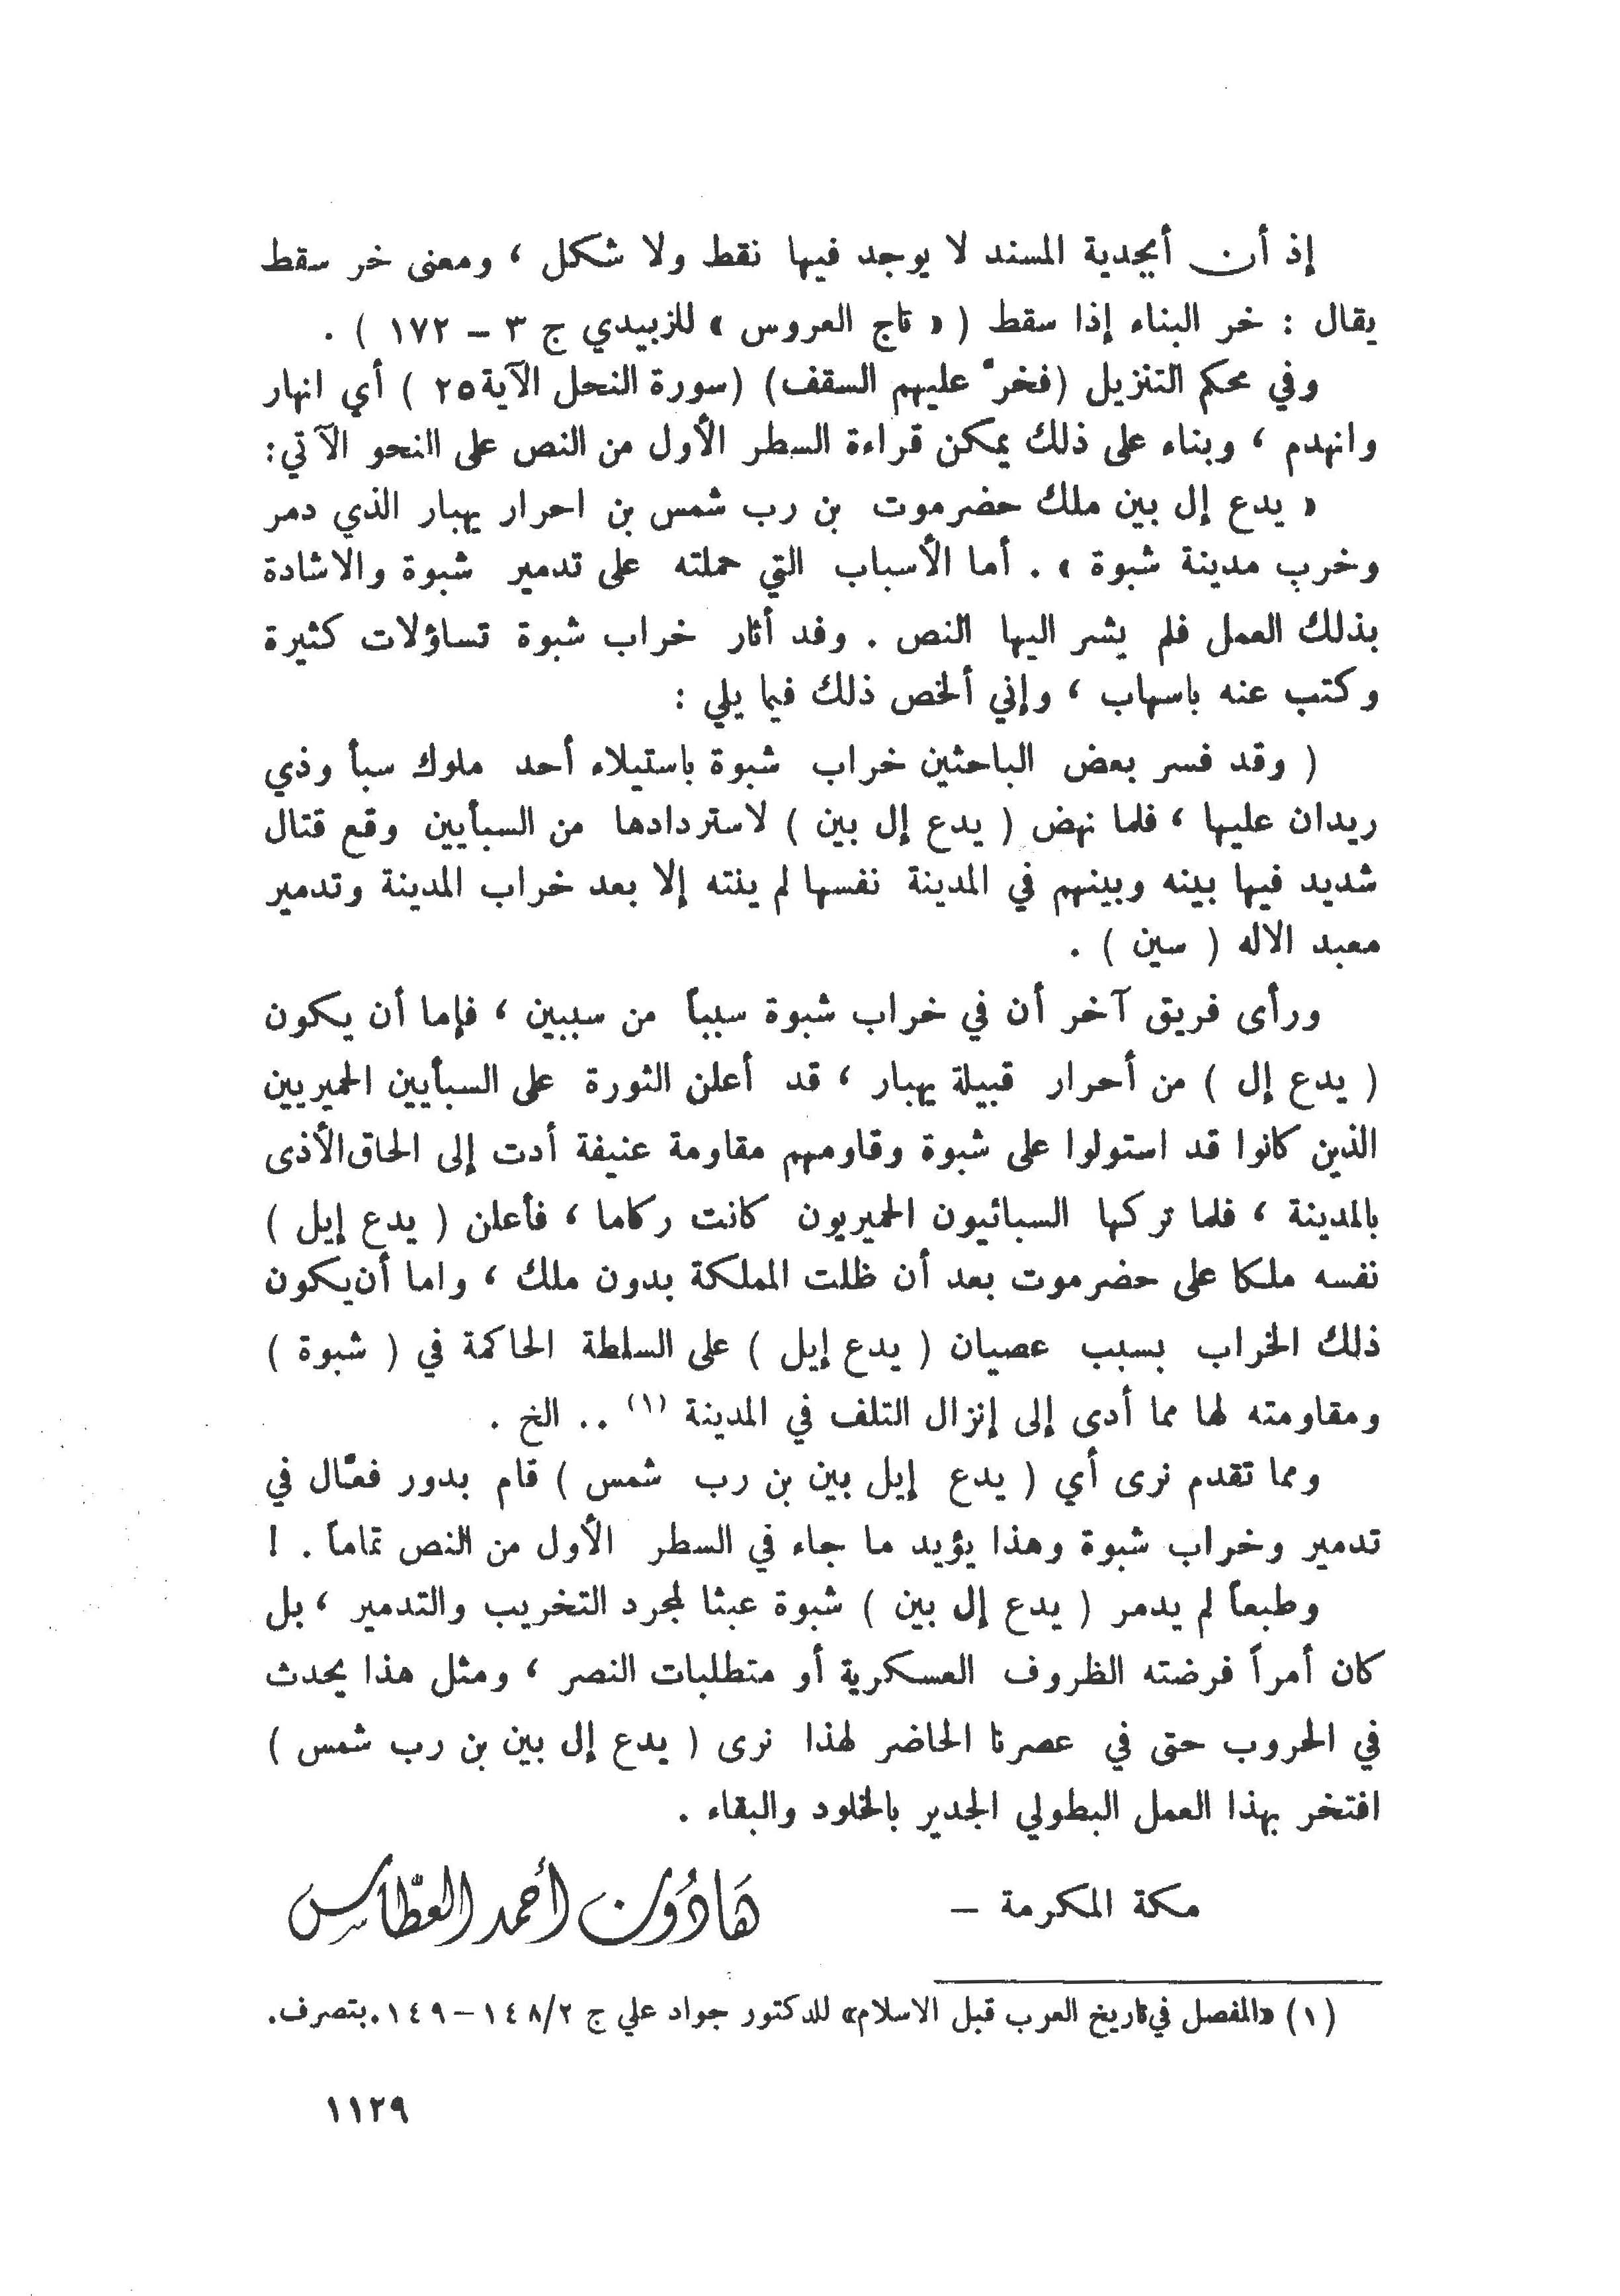 إذ أن أبجدية المسند لا يوجد فيها نقط ولا شكل ، ومعنى خر سقط
يقال : خر البناء إذا سقط ( « تاج العروس » للزبيدي ج ٣ – ١٧٢ ) .
وفي محكم التنزيل (فخرّ عليهم السقف) (سورة النحل الآية ٢٥ ) أي انهار
وانهدم ، وبناء على ذلك يمكن قراءة السطر الأول من النص على النحو الآتي:
« يدع إل بين ملك حضرموت بن رب شمس بن احرار يهبار الذي دمر
وخرب مدينة شبوة » . أما الأسباب التي حملته على تدمير شبوة والاشادة
بذلك العمل فلم يشر اليها النص . وقد أثار خراب شبوة تساؤلات كثيرة
وكتب عنه باسهاب ، وإني ألخص ذلك فيما يلي :
( وقد فسر بعض الباحثين خراب شبوة باستيلاء أحد ملوك سبأ وذي
ريدان عليها ، فلما نهض ( يدع إل بين ) لاستردادها من السبأيين وقع قتال
شديد فيها بينه وبينهم في المدينة نفسها لم ينته إلا بعد خراب المدينة وتدمير
معبد الاله ( سين ) .
ورأى فريق آخر أن في خراب شبوة سبباً من سببين ، فإما أن يكون
( يدع إل ) من أحرار قبيلة يهبار ، قد أعلن الثورة على السبأيين الحميريين
الذين كانوا قد استولوا على شبوة وقاومهم مقاومة عنيفة أدت إلى الحاق الأذى
بالمدينة ، فلما تركها السبائيون الحميريون كانت ركاما ، فأعلن ( يدع إيل )
نفسه ملكا على حضرموت بعد أن ظلت المملكة بدون ملك ، واما أن يكون
ذلك الخراب بسبب عصيان ( يدع إيل ) على السلطة الحاكمة في ( شبوة )
ومقاومته لها مما أدى إلى إنزال التلف في المدينة (١) .. الخ .
ومما تقدم نرى أي ( يدع إيل بين بن رب شمس ) قام بدور فعّال في
تدمير وخراب شبوة وهذا يؤيد ما جاء في السطر الأول من النص تماماً . !
وطبعاً لم يدمر ( يدع إل بين ) شبوة عبثا لمجرد التخريب والتدمير ، بل
كان أمراً فرضته الظروف العسكرية أو متطلبات النصر ، ومثل هذا يحدث
في الحروب حتى في عصرنا الحاضر لهذا نرى ( يدع إل بين بن رب شمس )
افتخر بهذا العمل البطولي الجدير بالخلود والبقاء .
مكة المكرمة – هَادُون أحمد العطّاس
(١) «المفصل في تاريخ العرب قبل الاسلام» للدكتور جواد علي ج ١٤٨/٢ – ١٤٩.بتصرف.
١١٢٩